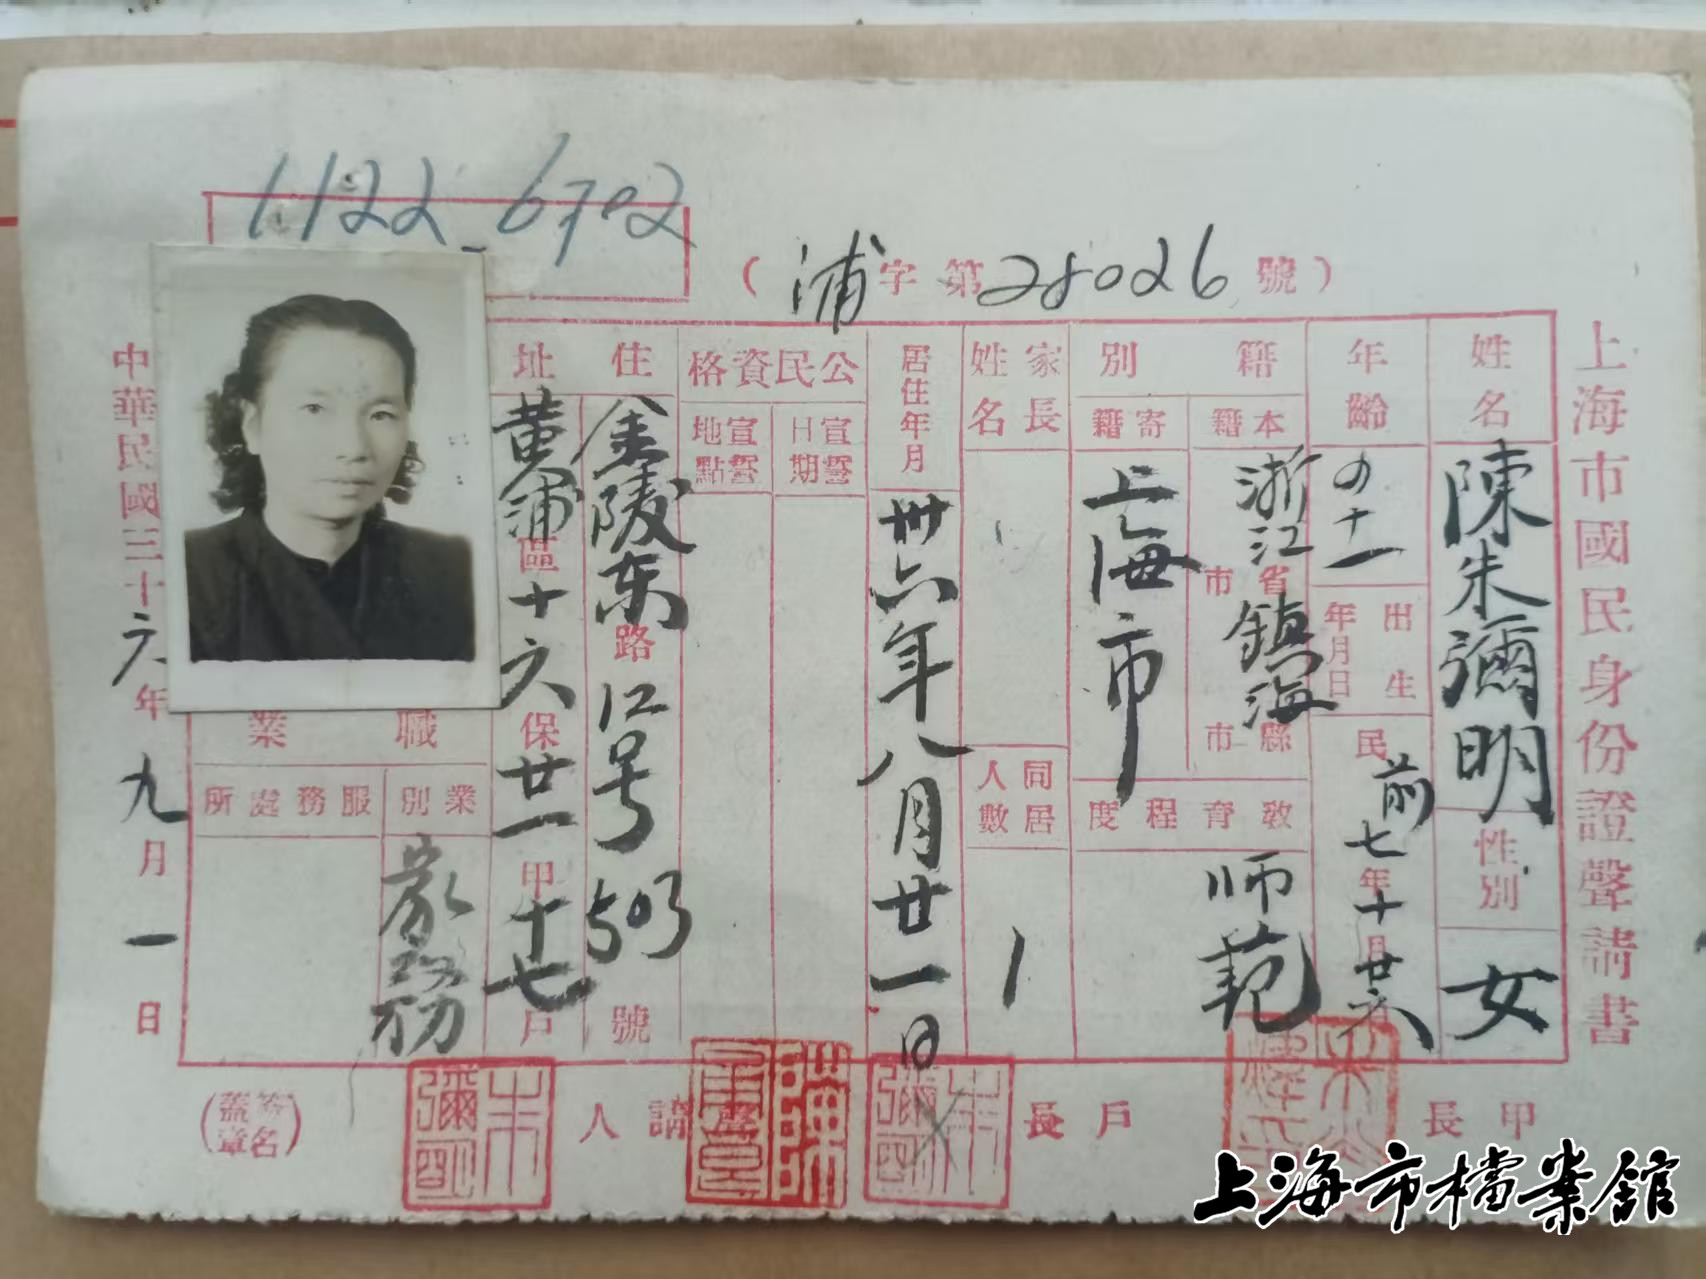 1122-6702
(浦字第28026號)
上海市國民身份證聲請書
姓名
陳朱彌明
性別
女
年齡
四十一
出生年月日
民前七年十月廿六
籍別
本籍
浙江省市鎮海縣市
寄籍
上海市
教育程度
师范
家長姓名
同居人數
1
居住年月
卅六年八月廿一日
公民資格
宣誓日期
宣誓地點
住址
金陵东路 号 號
黃浦區十六保廿一甲十七戶
職業
業別
家務
服務處所
中華民國三十六年九月一日
甲長
戶長
朱彌明
聲請人
朱彌明
(簽名蓋章)
上海市檔案館